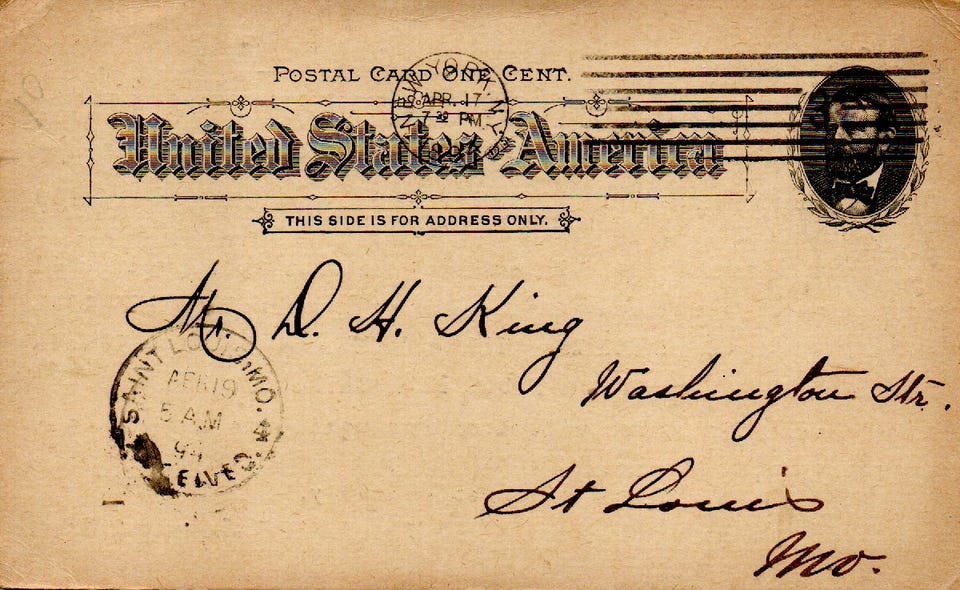 POSTAL CARD ONE CENT.
NEW YORK, N.Y.
APR. 17
7 30 PM
United States America
THIS SIDE IS FOR ADDRESS ONLY.
Mr. D. H. King
Washington Str.
St Louis
Mo.
SAINT LOUIS, MO.
APR 19
5 AM
94
RECEIVED
10